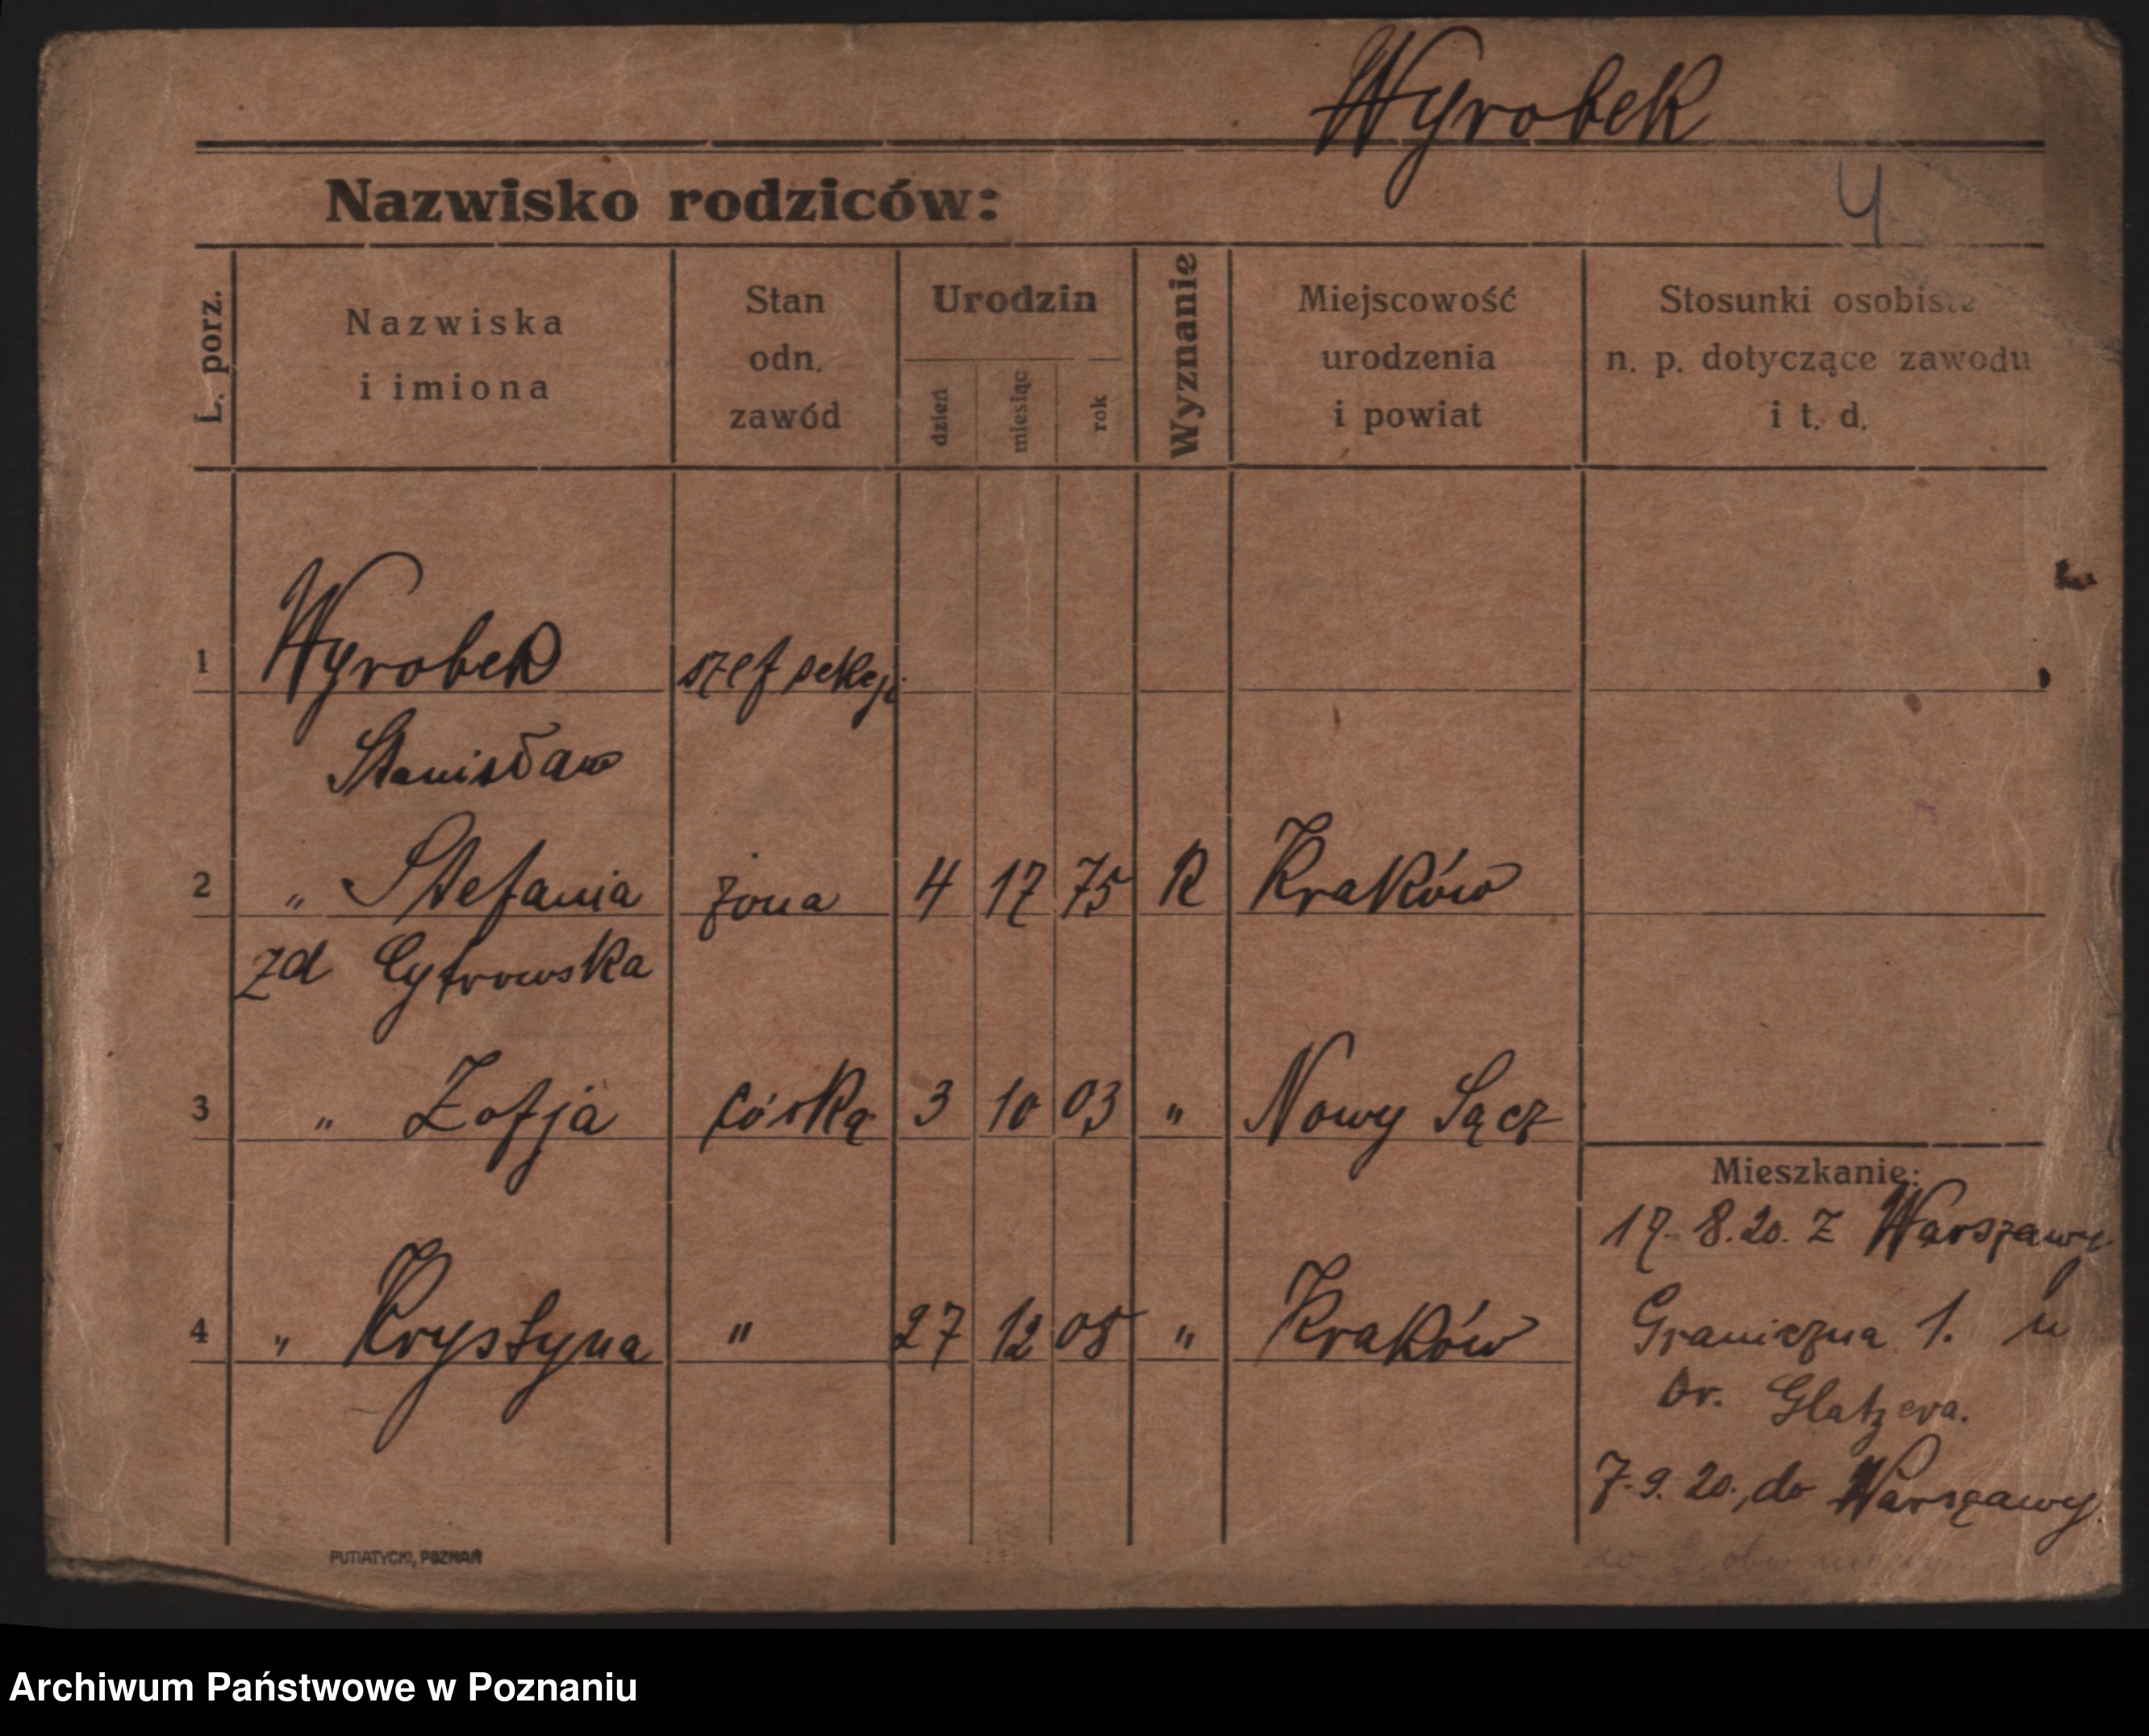 Wyrobek
Nazwisko rodziców:
4
L. porz.
Nazwiska
i imiona
Stan
odn.
zawód
Urodzin
dzień
miesiąc
rok
Wyznanie
Miejscowość
urodzenia
i powiat
Stosunki osobiste
n. p. dotyczące zawodu
i t. d.
1 Wyrobek szef sekcji
Stanisław
2 „ Stefania żona 4 12 75 R Kraków
zd Cytrowska
3 „ Zofja córka 3 10 03 „ Nowy Sącz
4 „ Krystyna „ 27 12 05 „ Kraków
Mieszkanie:
17. 8. 20. z Warszawy
Graniczna 1. u
Dr. Glatzera.
7. 9. 20., do Warszawy.
PUTIATYCKI, POZNAŃ
Archiwum Państwowe w Poznaniu